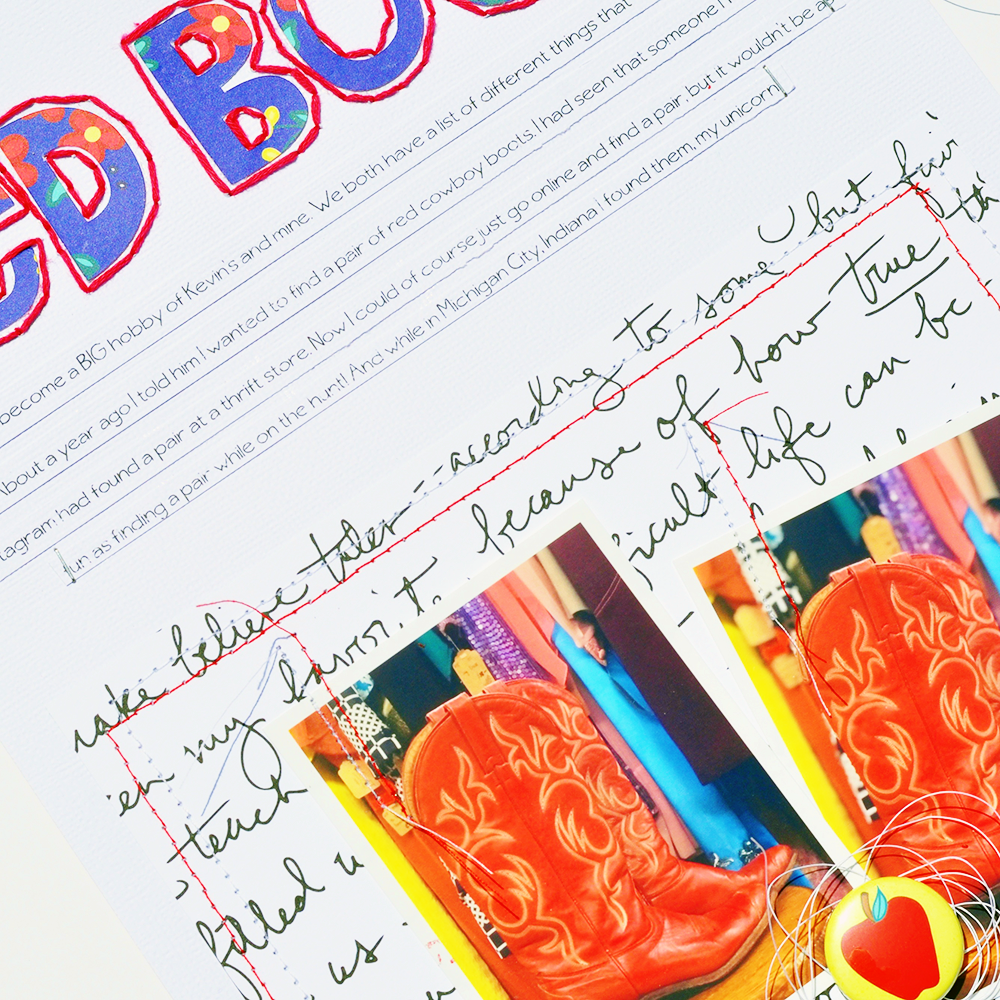 ED BOO
become a BIG hobby of Kevin's and mine. We both have a list of different things that
About a year ago I told him I wanted to find a pair of red cowboy boots. I had seen that someone
had found a pair at a thrift store. Now I could of course just go online and find a pair, but it wouldn't be
fun as finding a pair while on the hunt! And while in Michigan City, Indiana I found them, my unicorn!
but
make believe tales - according to some
my because of how true
teach life can be
filled
us